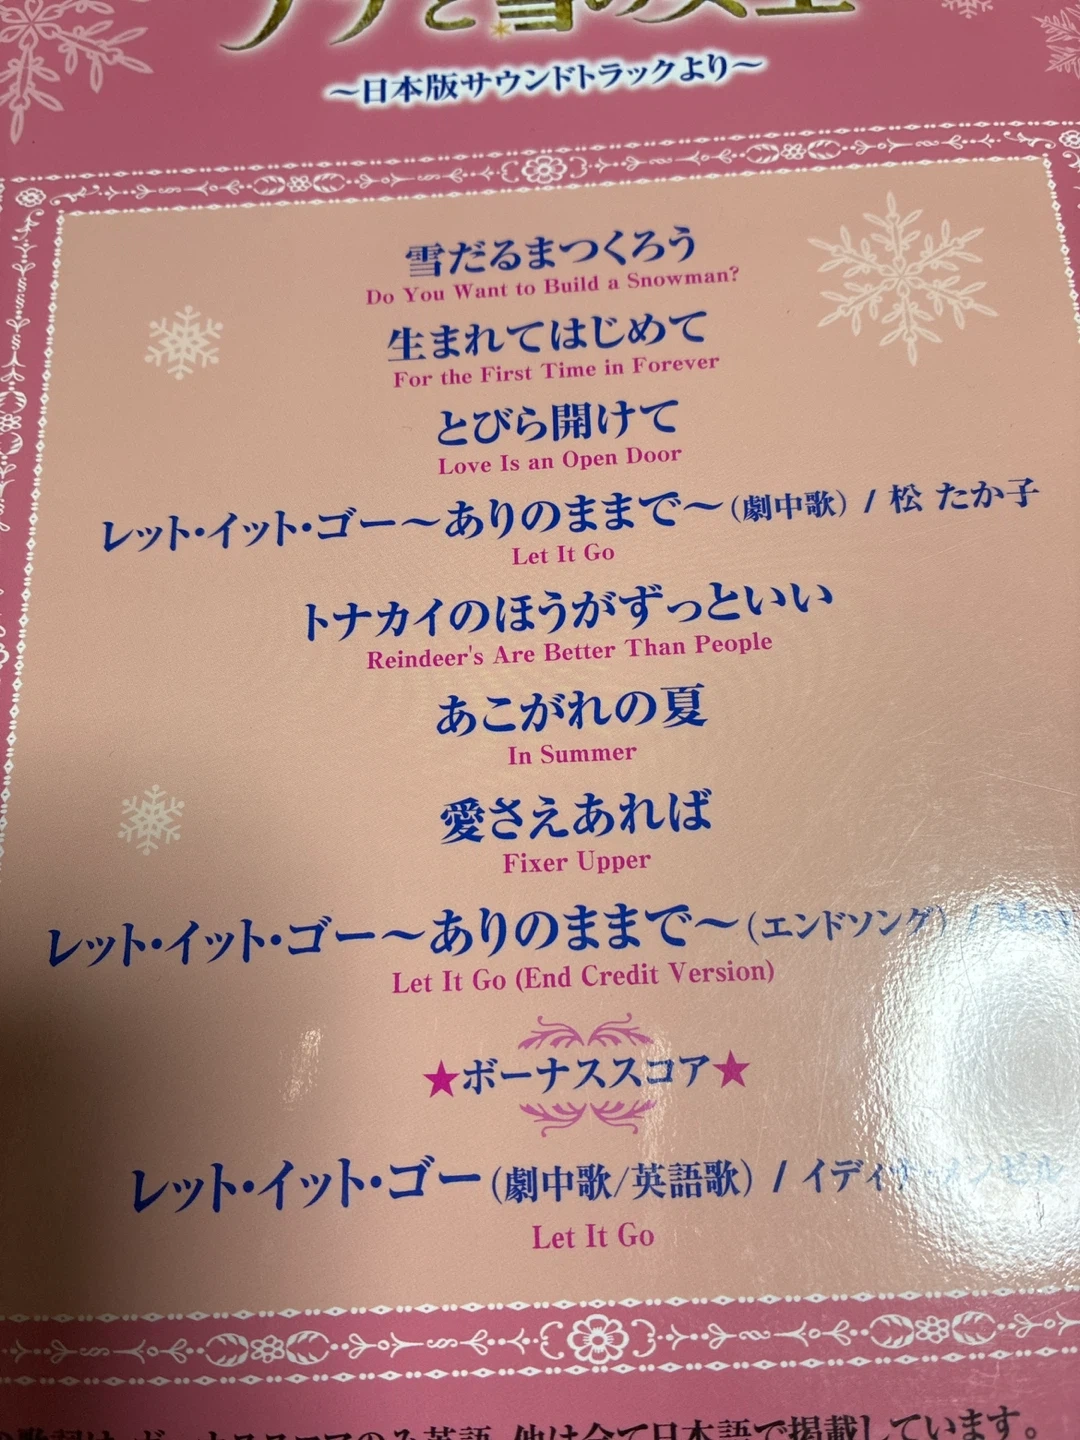 アナと雪の女王
～日本版サウンドトラックより～
雪だるまつくろう
Do You Want to Build a Snowman?
生まれてはじめて
For the First Time in Forever
とびら開けて
Love Is an Open Door
レット・イット・ゴー～ありのままで～（劇中歌）/ 松 たか子
Let It Go
トナカイのほうがずっといい
Reindeer's Are Better Than People
あこがれの夏
In Summer
愛さえあれば
Fixer Upper
レット・イット・ゴー～ありのままで～（エンドソング）/
Let It Go (End Credit Version)
★ボーナススコア★
レット・イット・ゴー（劇中歌/英語歌）/ イディナ・メンゼル
Let It Go
歌詞は、ボーナススコアのみ英語、他は全て日本語で掲載しています。